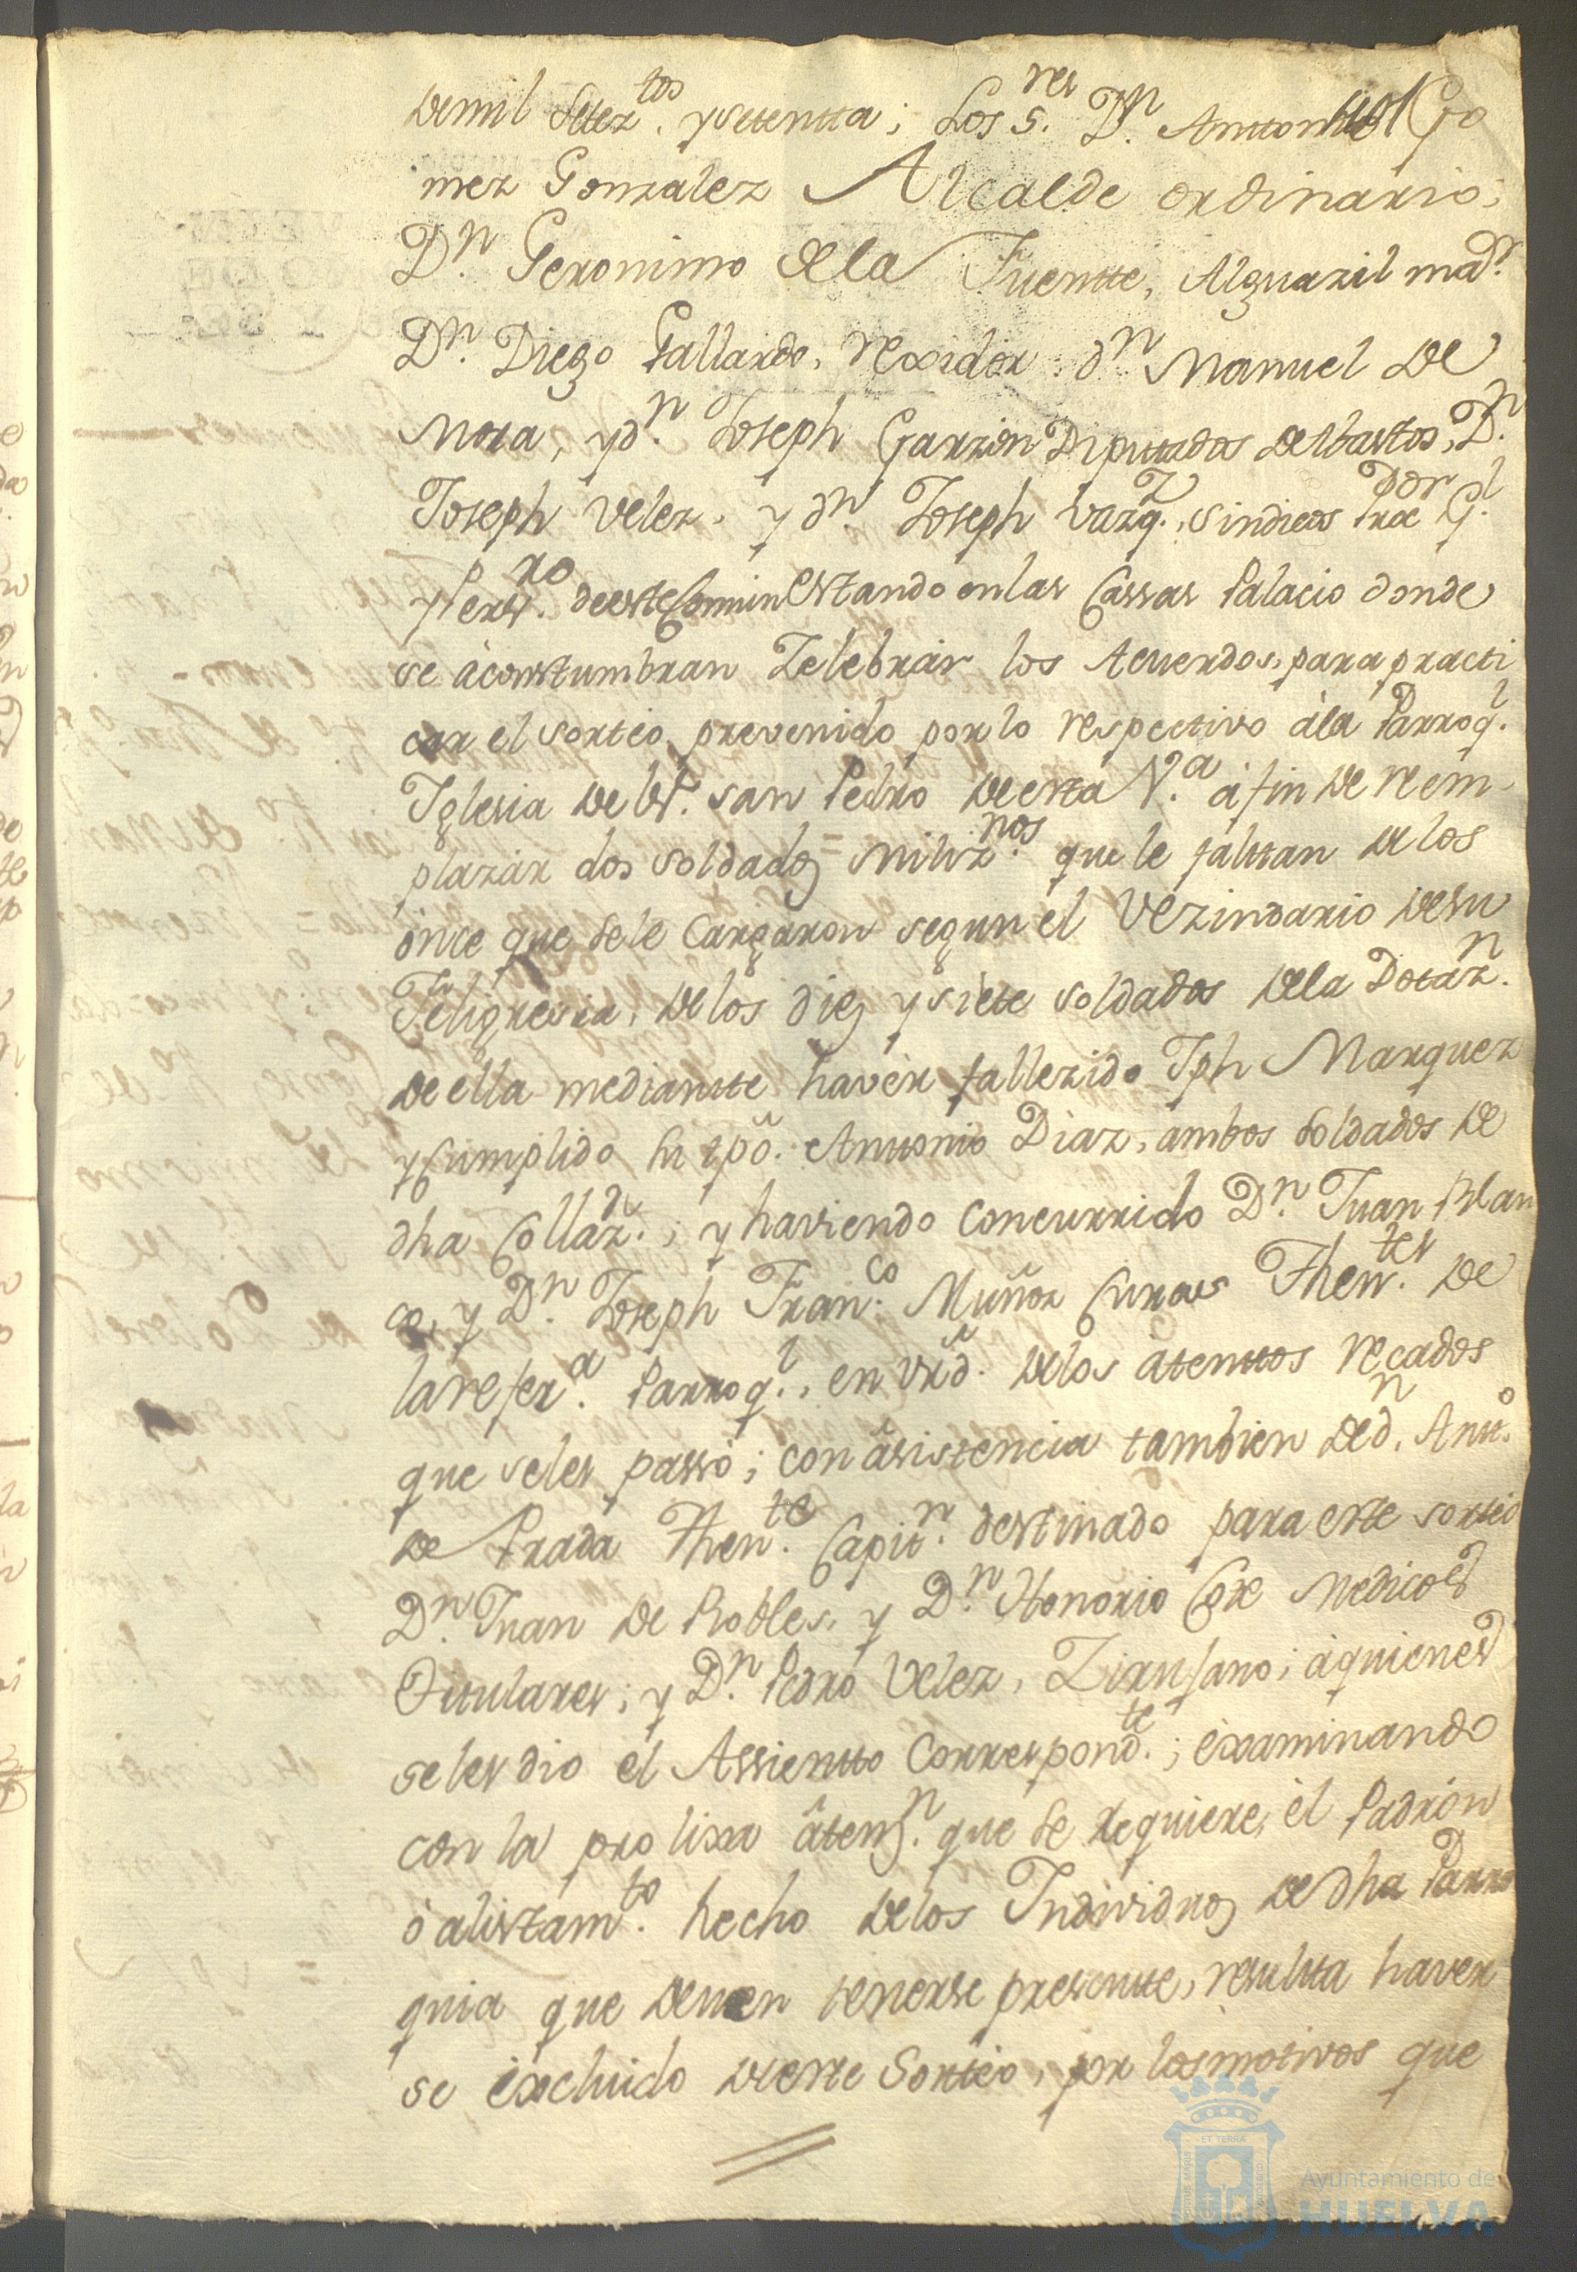 de mil Setez.tos y setentta; Los S.res D.n Anttonio Go
mez Gonzalez Alcalde ordinario,
D.n Geronimo de la Fuentte, Alguazil ma.r
D.n Diego Gallardo, rexidor. d.n Manuel de
Mora, y d.n Joseph Garzon Diputtados de Abastos, D.n
Joseph Velez, y d.n Joseph Vazq.z, sindicos Proc.dor G.l
y Pers.ro de este Comun Estando en las Cassas Palacio donde
se àcostumbran Zelebràr los Acuerdos, para practi
car el sorteo prevenido por lo respectivo àla Parroq.l
Iglesia de S.r san Pedro de esta V.a à fin de reem-
plazàr dos soldados Miliz.nos que le faltan de los
once que se le Cargaron segun el Vezindario de su
Feligresia, de los diez y siete soldados de la Dotaz.n
de ella mediantte havèr fallezido Jph Marquez
y Cumplido su tpõ. Anttonio Diaz, ambos soldados de
dha Collaz.n; y haviendo Concurrido D.n Juan Blan
co, y D.n Joseph Fran.co Muñoz Curas Then.tes de
la refer.a Parroq.l, en vrd. de los atenttos recados
que se les passò; con àsistencia tambien de d.n Antt.o
de Prada Then.te Capit.n destinado para este sorteo
D.n Juan de Robles, y D.n Honorio Medicos
Titulares; y D.n Pedro Velez, Zirujano; à quienes
se les dio el Assientto Correspond.te; èxaminando
con la prolixa àtenz.n que se requiere, èl Padròn
ò alistam.to hecho de los Individuos de dha Parro
quia que deven tenerse presentte, resultta haver
se èxcluido de este Sorteo, por los motivos que
Ayuntamiento de
HUELVA